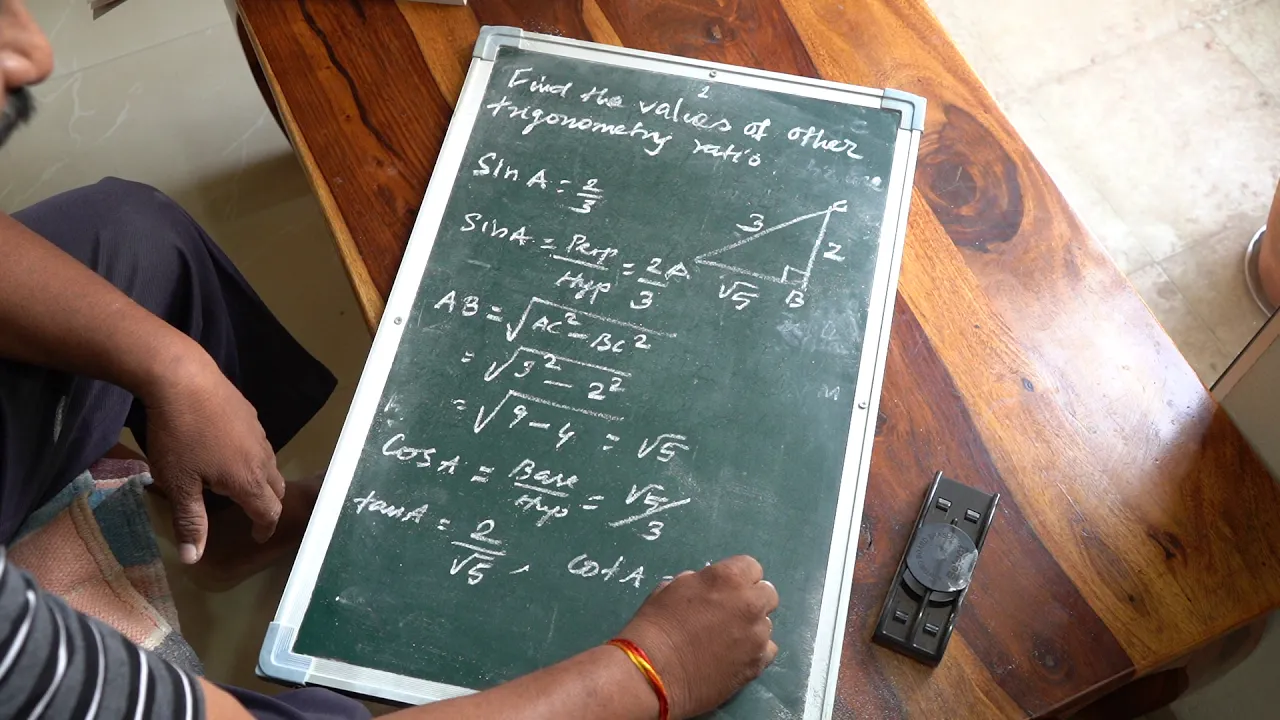 1
Find the values of other
trigonometry ratio
Sin A = 2/3
Sin A = Perp/Hyp = 2/3
A 3 C 2 B √5
AB = √AC² - BC²
= √3² - 2²
= √9 - 4 = √5
Cos A = Base/Hyp = √5/3
tan A = 2/√5 , Cot A =